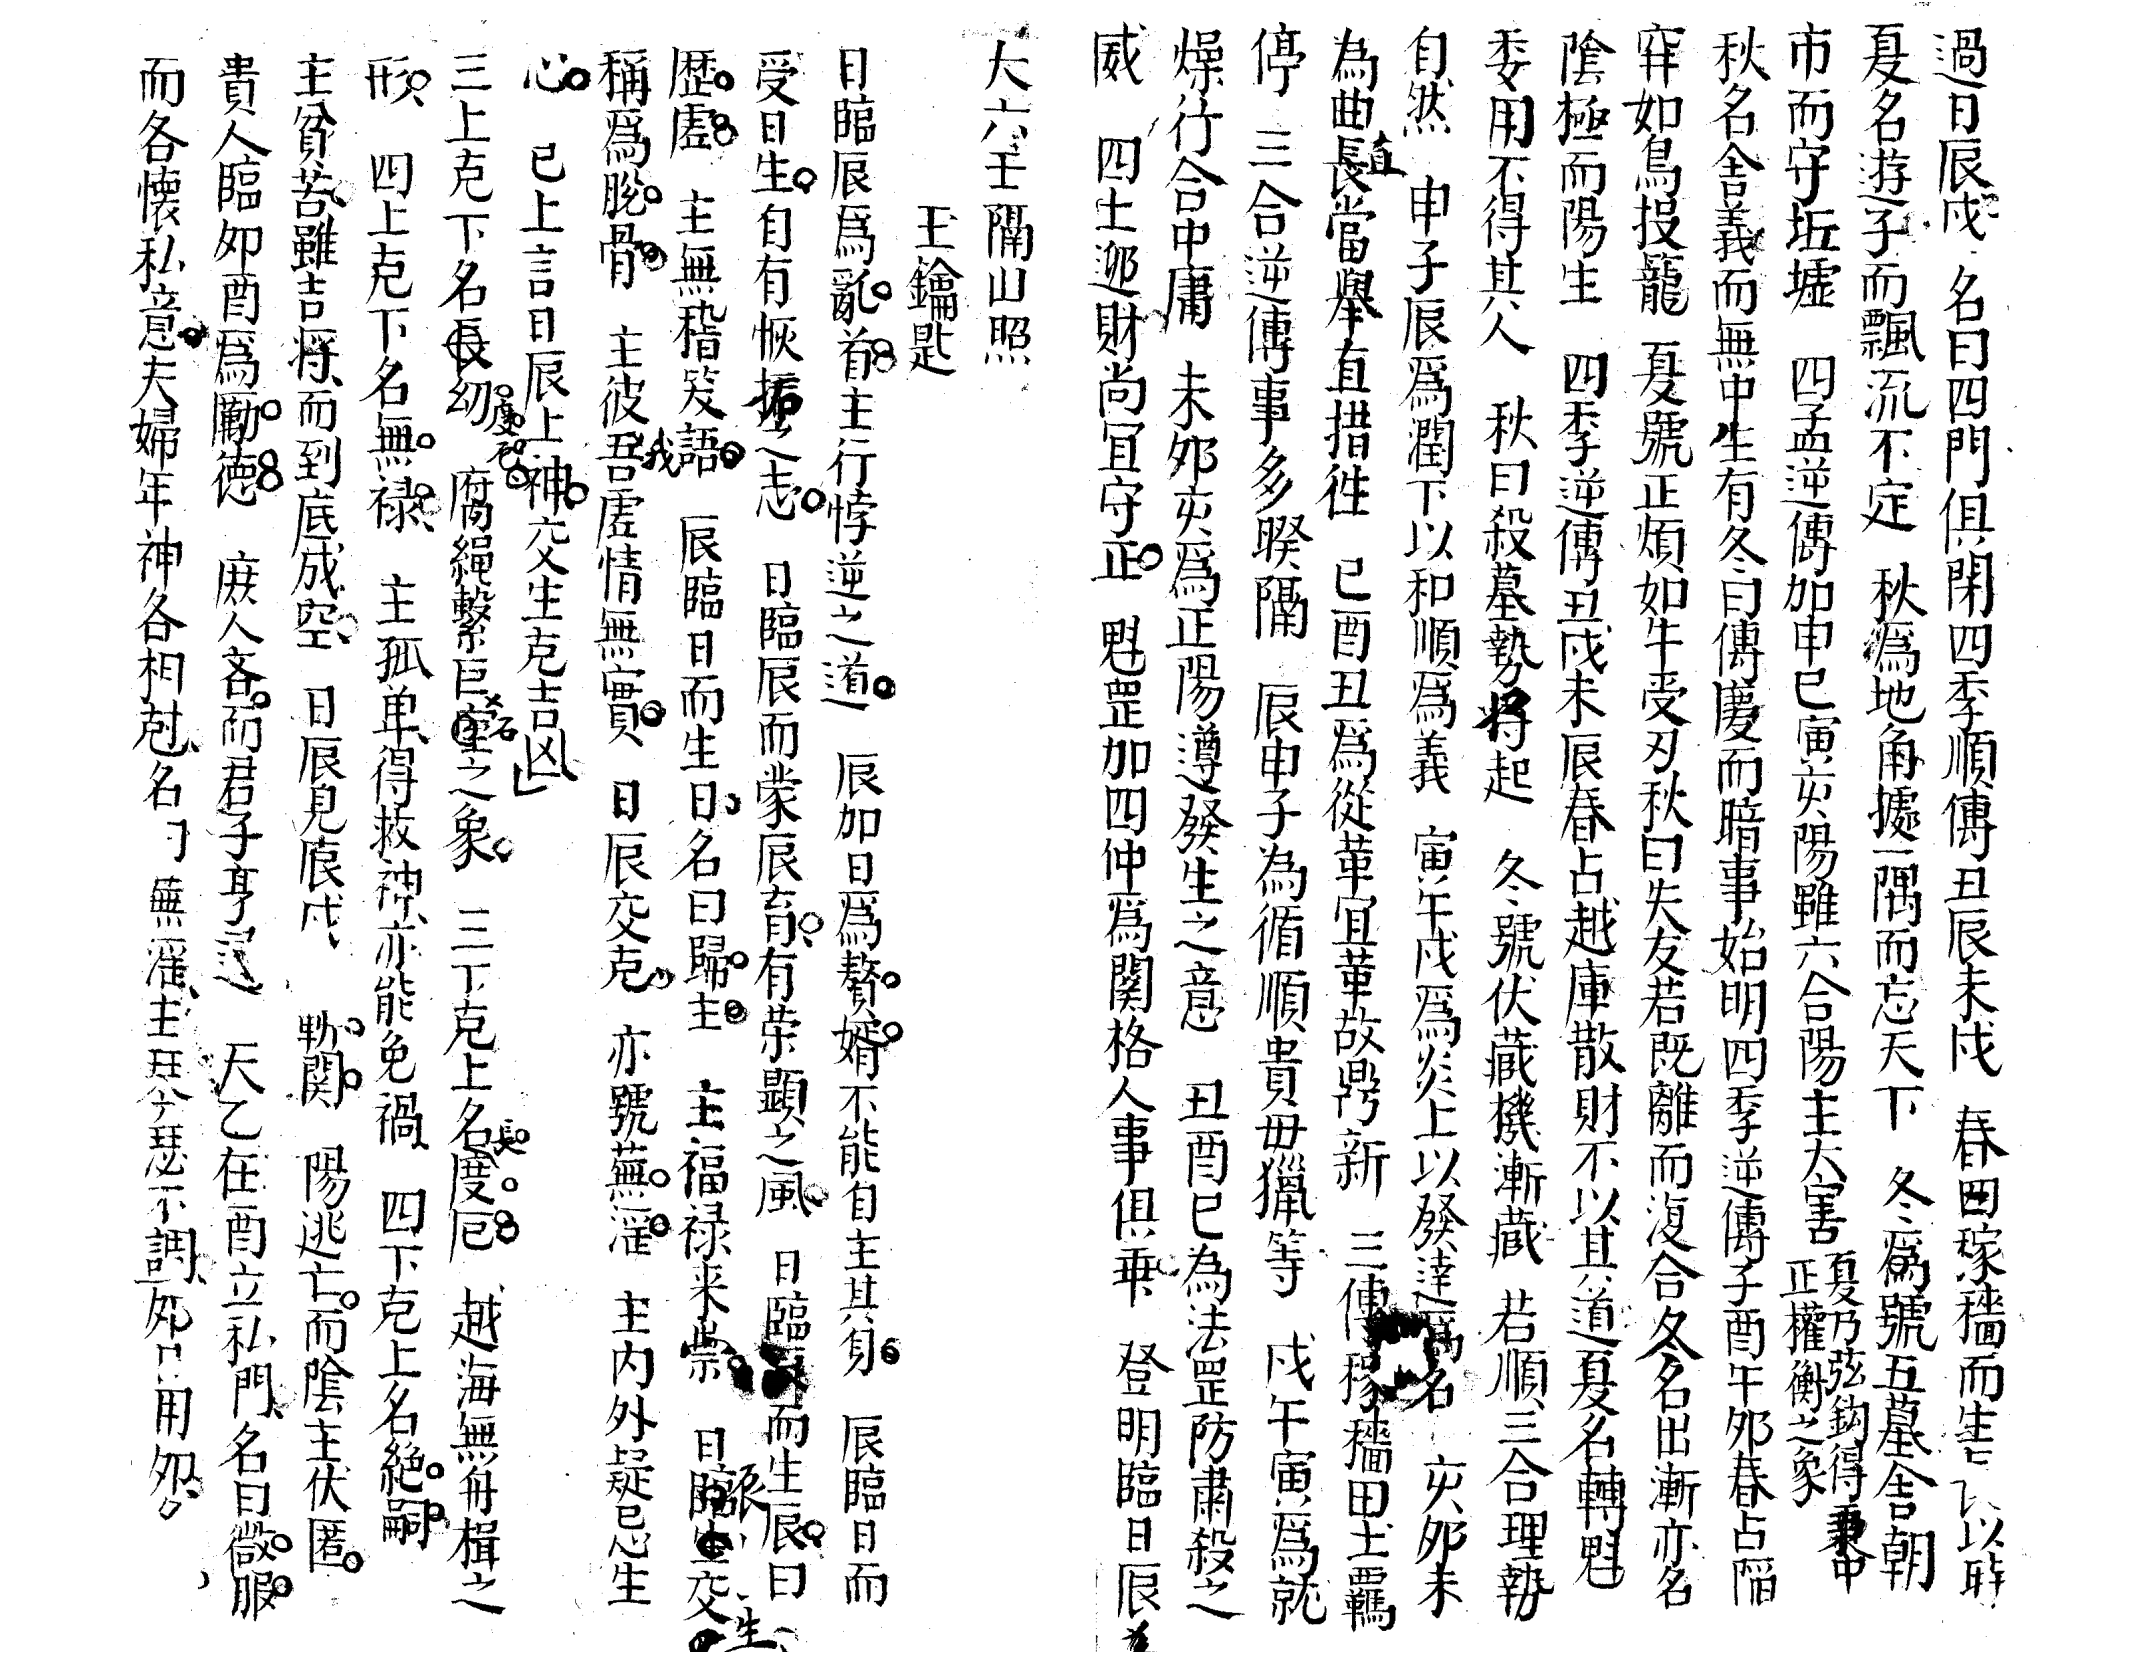 過日辰戌名曰四門俱閉四季順傳丑辰未戌 春曰稼穡而生 以
夏名遊子而飄流不定 秋爲地角據一隅而忘天下 冬爲號五墓舍朝
市而守坵墟 四孟逆傳加申巳寅亥陽雖六合陽主大害 夏乃弦鈎得秉中正權衡之象
秋名舍義而無中生有冬曰傳慶而暗事始明四季逆傳子酉午夘春占陷
穽如鳥投籠 夏號正煩如牛受刃秋曰失友若既離而復合冬名出漸亦名
陰極而陽生 四季逆傳丑戌未辰春占越庫散財不以其道夏名轉魁
委用不得其人 秋曰殺墓勢將起 冬號伏藏機漸藏 若順三合理勢
自然 申子辰爲潤下以和順爲義 寅午戌爲炎上以發達爲名 亥夘未
為曲直長當舉直措徃 巳酉丑爲從革宜革故鼎新 三傳稼穡田土羈
停 三合逆傳事多暌隔 辰申子為循順貴毋獵等 戌午寅爲就
燥行合中庸 未夘亥爲正陽遵發生之意 丑酉巳為法罡防肅殺之
威 四土迎財尚冝守正 魁罡加四仲爲関格人事俱乗 登明臨日辰
大六壬隔山照
玉鑰匙
日臨辰爲亂首主行悖逆之道 辰加日爲贅婿不能自主其身 辰臨日而
受日生自有恢振之志 日臨辰而蒙辰育有荣顯之風 日臨 而生辰曰
歷虛 主無稽笑語 辰臨日而生日名曰歸主 主福禄来崇 日辰交生
稱爲脫骨 主彼我虛情無實 日辰交克 亦號蕪淫 主内外疑忌生
心 已上言日辰上神交生克吉凶
三上克下名長幼度厄 腐繩繫巨石之象 三下克上名長度厄 越海無舟楫之
形 四上克下名無禄 主孤单得救神亦能免禍 四下克上名絶嗣
主貧苦雖吉将而到底成空 日辰見辰戌 勒関 陽逃亡而陰主伏匿
貴人臨夘酉爲勵德 庶人吝而君子亨 天乙在酉立私門名曰微服
而各懐私意夫婦年神各相尅名曰蕪淫主琴瑟不調 夘 用夘